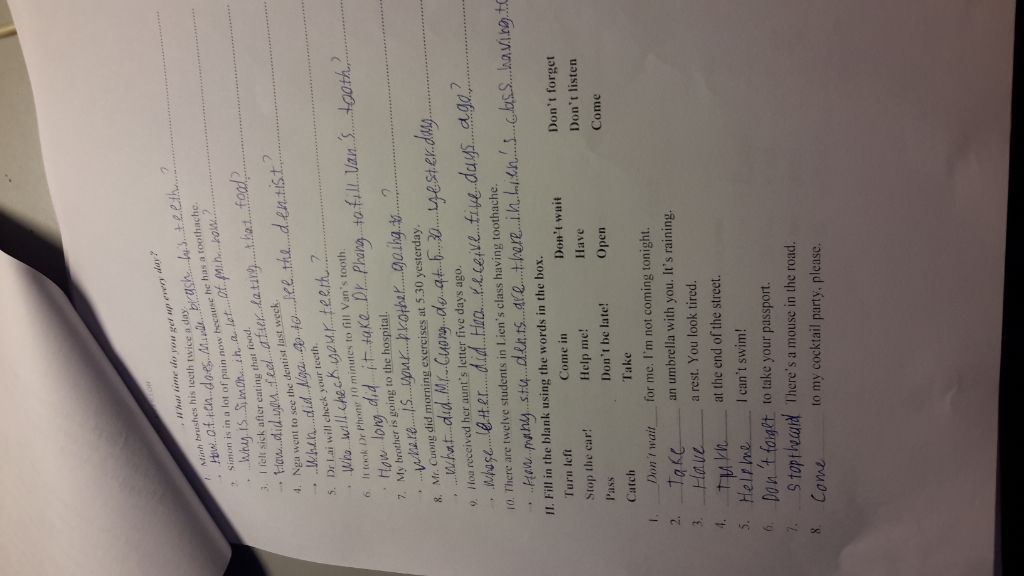 What time do you get up every day?
1. Minh brushes his teeth twice a day.
How often does Minh brush his teeth?
2. Simon is in a lot of pain now because he has a toothache.
Why is Simon in a lot of pain now?
3. I felt sick after eating that food.
→ How did you feel after eating that food?
4. Nga went to see the dentist last week.
→ When did Nga go to see the dentist?
5. Dr Lai will check your teeth.
Who will check your teeth?
6. It took Dr Phong 10 minutes to fill Van's tooth.
How long did it take Dr Phong to fill Van's tooth?
7. My brother is going to the hospital.
Where is your brother going to?
8. Mr. Cuong did morning exercises at 5.30 yesterday.
What did Mr. Cuong do at 5.30 yesterday
9. Hoa received her aunt's letter five days ago.
→ Whose letter did Hoa receive five days ago?
10. There are twelve students in Lien's class having toothache.
→ How many students are there in Lien's class having to
II. Fill in the blank using the words in the box.
Turn left Come in Don't wait Don't forget
Stop the car! Help me! Have Don't listen
Pass Don't be late! Open Come
Catch Take
1. Don't wait for me. I'm not coming tonight.
2. Take an umbrella with you. It's raining.
3. Have a rest. You look tired.
4. Turn at the end of the street.
5. Help me I can't swim!
6. Don't forget to take your passport.
7. Stop the card There's a mouse in the road.
8. Come to my cocktail party, please.